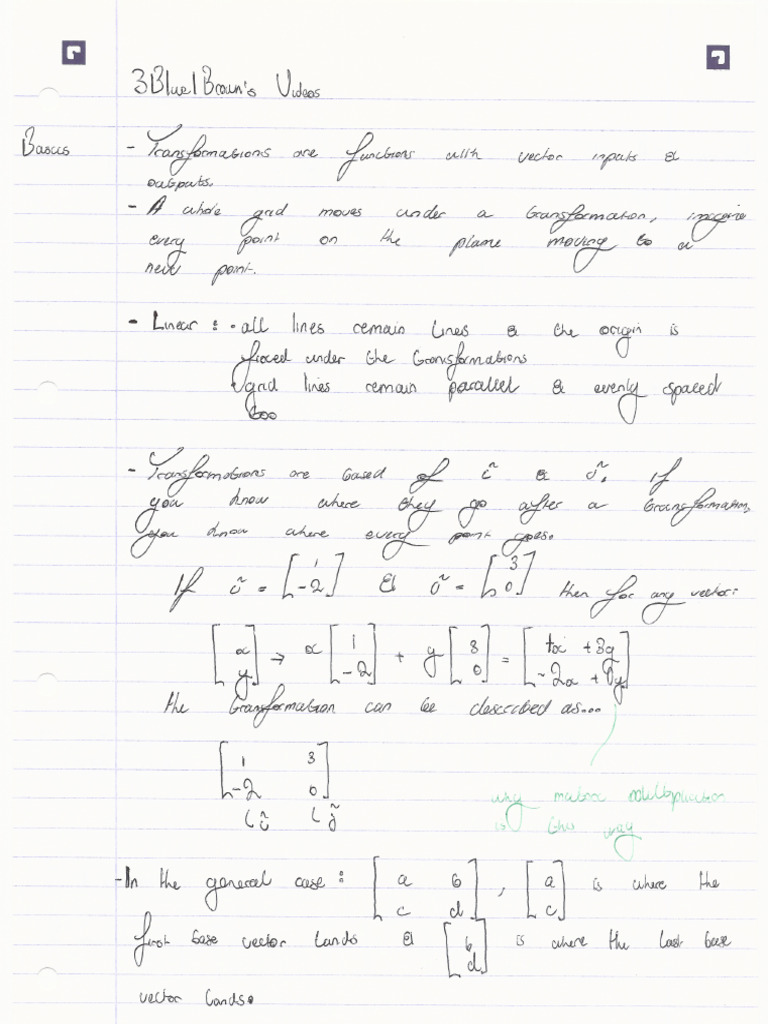 3Blue1Brown's Videos
Basics - Transformations are functions with vector inputs &
outputs.
- A whole grid moves under a transformation, imagine
every point on the plane moving to a
new point.
- Linear : - all lines remain lines & the origin is
fixed under the transformations
- grid lines remain parallel & evenly spaced
too
- Transformations are based of î & ĵ. If
you know where they go after a transformation,
you know where every point goes.
If î = [1 -2] & ĵ = [3 0] then for any vector:
[x y] → x [1 -2] + y [3 0] = [1x + 3y -2x + 0y]
the transformation can be described as...
[1 3
-2 0]
î ĵ
why matrix multiplication
is this way
- In the general case : [a b c d] , [a c] is where the
first base vector lands & [b d] is where the last base
vector lands.